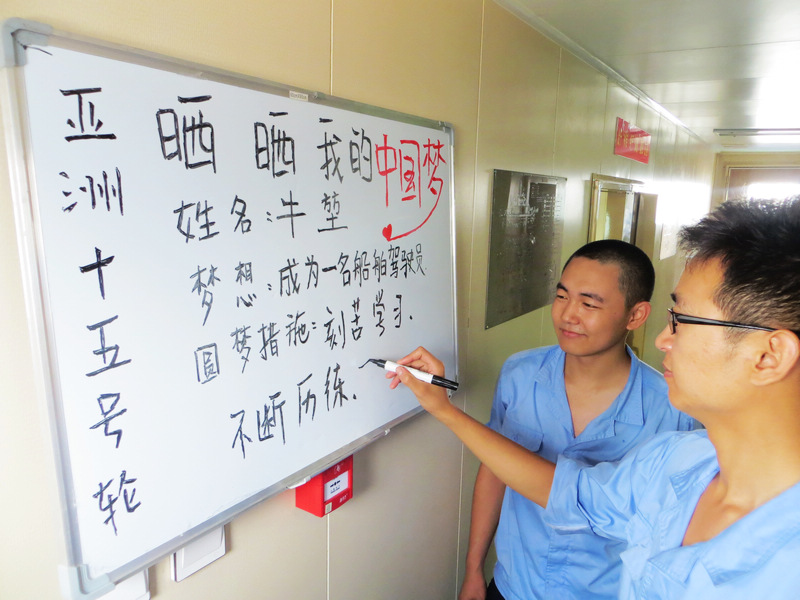 亚洲十五号轮
晒晒我的中国梦
姓名:牛堃
梦想:成为一名船舶驾驶员.
圆梦措施:刻苦学习.
不断历练.